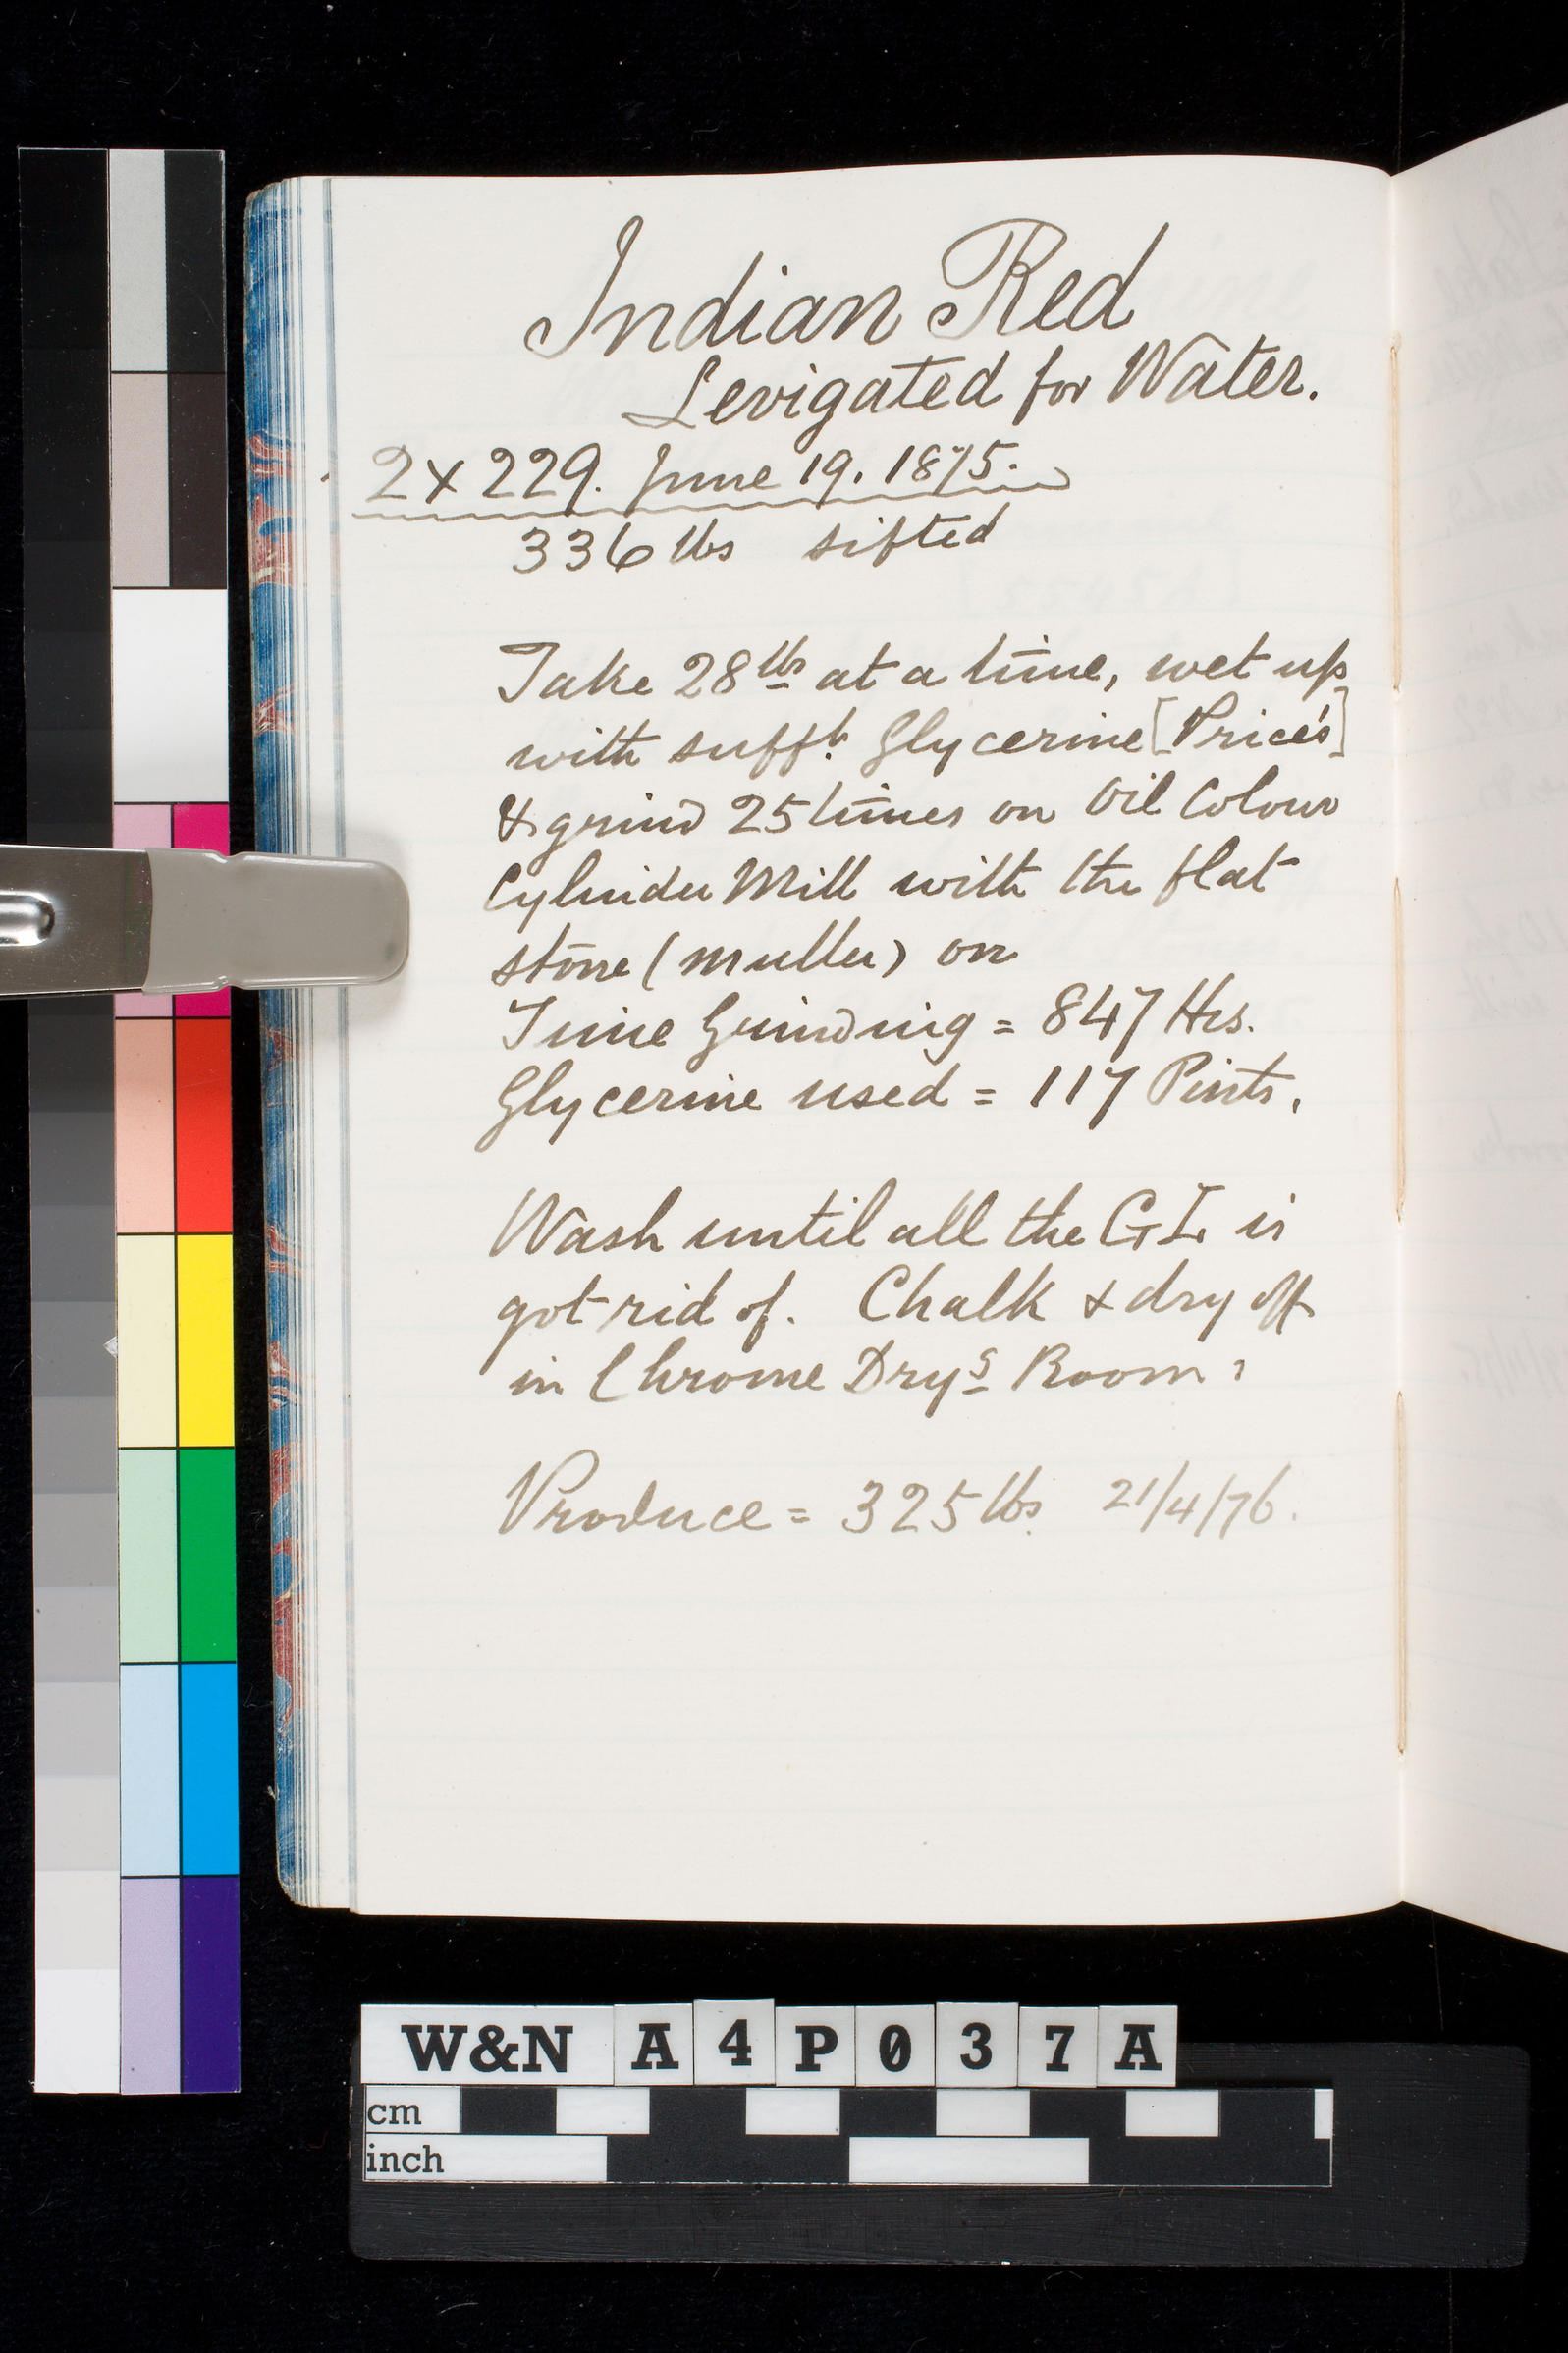 Indian Red
Levigated for Water.
2 x 229. June 19. 1875.
336 lbs sifted
Take 28 lbs at a time, wet up
with sufft. Glycerine [Price's]
& grind 25 times on Oil Colour
Cylinder Mill with the flat
stone (muller) on
Time Grinding = 847 Hrs.
Glycerine used = 117 Pints.
Wash until all the GL is
got rid of. Chalk & dry off
in Chrome Dryg Room.
Produce = 325 lbs. 21/4/76.
W&N A4P037A
cm
inch